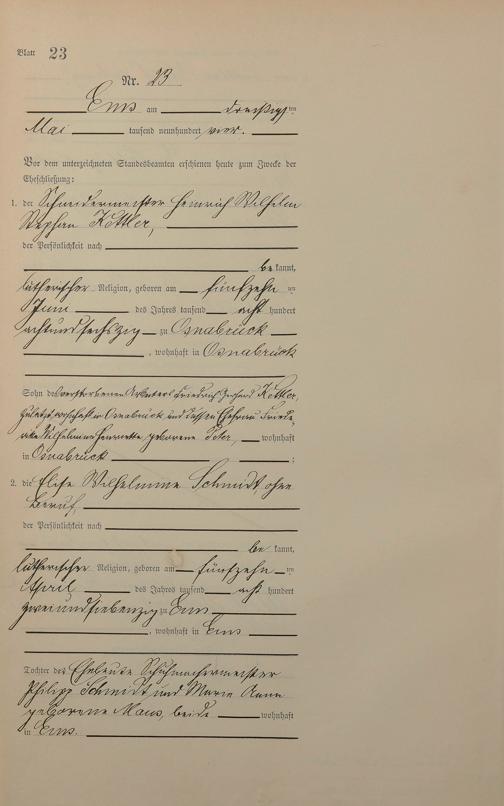 Blatt 23
Nr. 23
Ems am dreißigsten
Mai tausend neunhundert vier.
Vor dem unterzeichneten Standesbeamten erschienen heute zum Zwecke der
Eheschließung:
1. der Schneidermeister Heinrich Wilhelm
Stephan Köttler,
der Persönlichkeit nach
be kannt,
lutherischer Religion, geboren am fünfzehn ten
Juni des Jahres tausend acht hundert
achtundsechszig zu Osnabrück
, wohnhaft in Osnabrück
Sohn des verstorbenen Arbeiters Friedrich Gerhard Köttler,
zuletzt wohnhaft in Osnabrück und dessen Ehefrau Friede-
rike Wilhelmine Henriette geborene wohnhaft
in Osnabrück ;
2. die Elise Wilhelmine Schmidt ohne
Beruf,
der Persönlichkeit nach
be kannt,
lutherischer Religion, geboren am fünfzehn ten
April des Jahres tausend acht hundert
zweiundsiebenzig zu Ems
, wohnhaft in Ems
Tochter der Eheleute Schuhmachermeister
Philipp Schmidt und Marie Anna
geborene Maus, beide wohnhaft
in Ems.